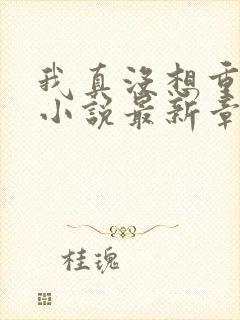 我真没想重
小说最新章
桂瑰